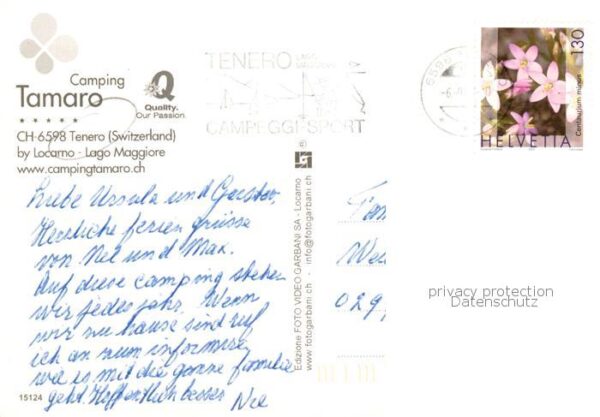 Camping
Tamaro
Quality.
Our Passion.
CH-6598 Tenero (Switzerland)
by Locarno - Lago Maggiore
www.campingtamaro.ch
TENERO LAGO
CAMPEGGI-SPORT
6598
130
Centaurium minus
HELVETIA
Liebe Ursula und
Herzliche ferien grüsse
von Nel und Max.
Auf diese camping stehen
wir jedes jahr. Wenn
wir zu hause sind ruf
ich an zum informieren
wie es mit die ganze familie
geht. Hoffentlich besser
Edizione FOTO VIDEO GARBANI SA - Locarno
www.fotogarbani.ch - info@fotogarbani.ch
Fam
029
privacy protection
Datenschutz
15124